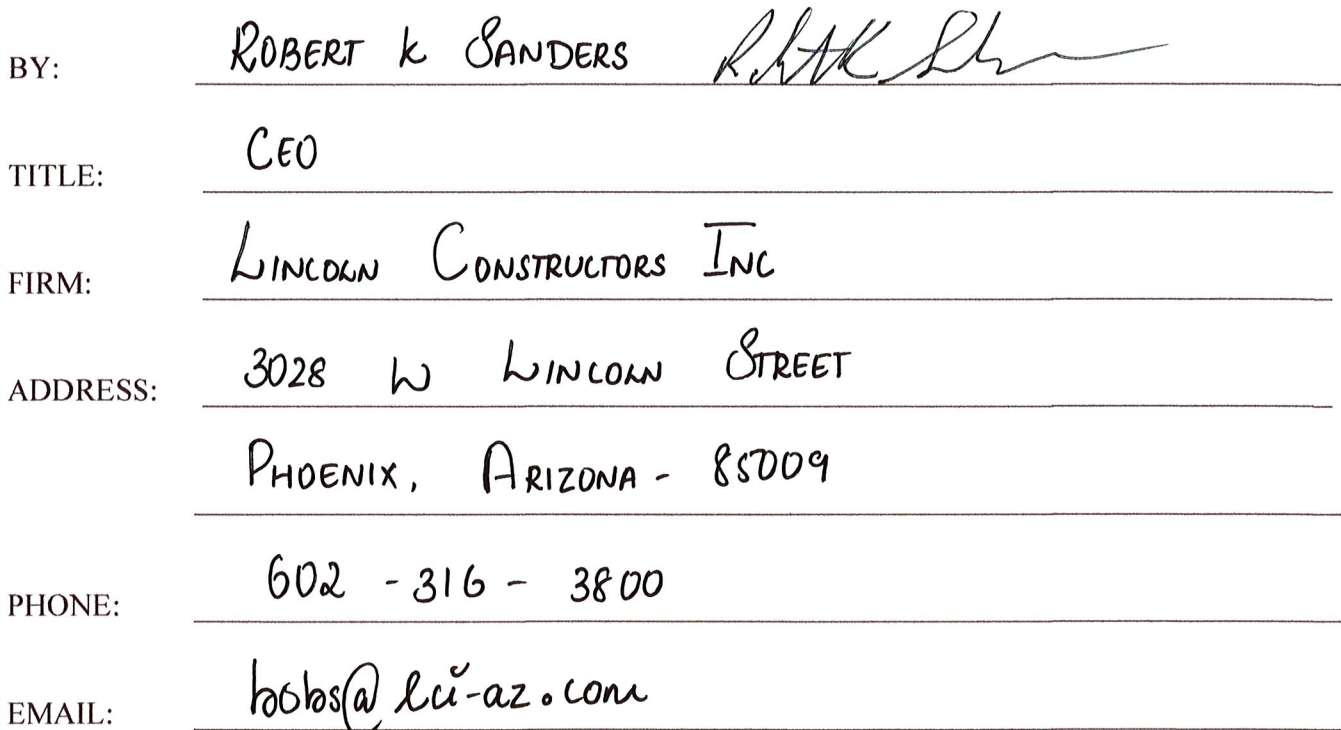 BY: ROBERT K SANDERS
TITLE: CEO
FIRM: LINCOLN CONSTRUCTORS INC
ADDRESS: 3028 W LINCOLN STREET
PHOENIX, ARIZONA - 85009
PHONE: 602 - 316 - 3800
EMAIL: bobs@lci-az.com